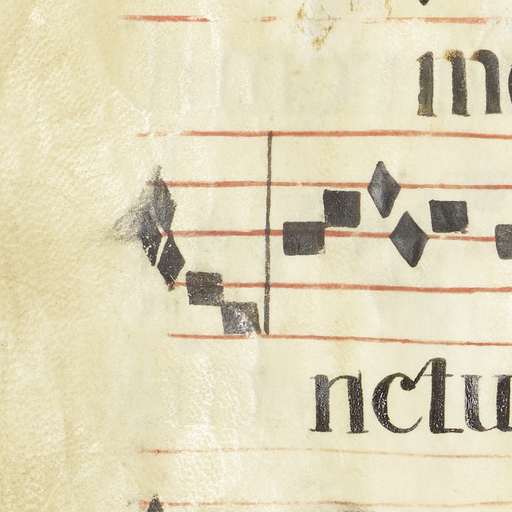 m
nctu